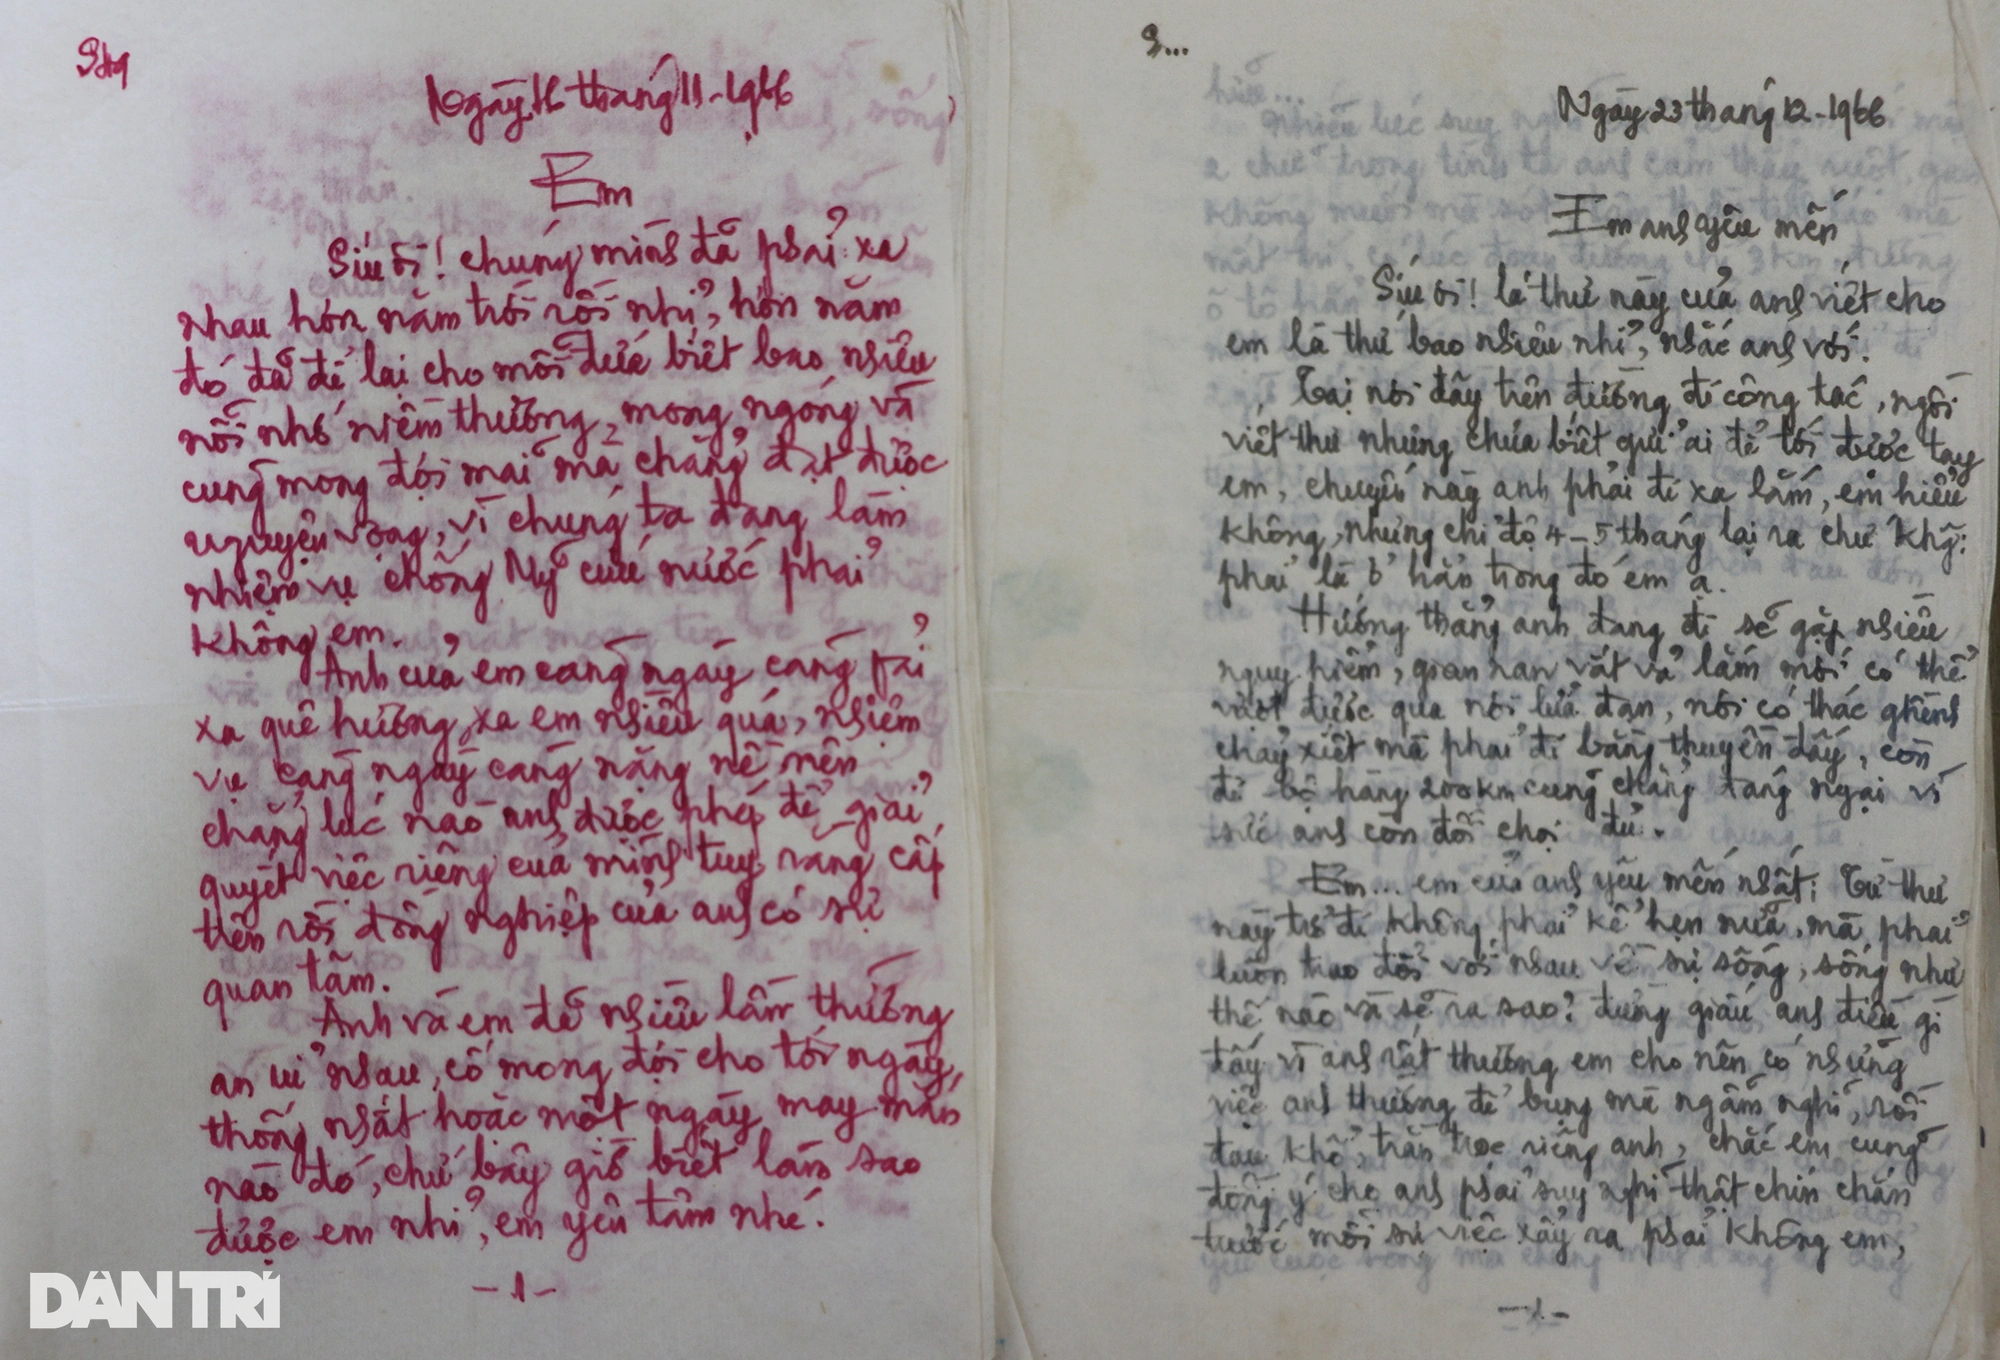 Ngày 16 tháng 11-1966
Em
Síu ơi! chúng mình đã phải xa
nhau hơn năm trời rồi nhỉ, hơn năm
đó đã để lại cho mỗi đứa biết bao nhiêu
nỗi nhớ niềm thương, mong ngóng và
cũng mong đợi mãi mà chẳng đạt được
nguyện vọng, vì chúng ta đang làm
nhiệm vụ chống Mỹ cứu nước phải
không em.
Anh của em càng ngày càng phải
xa quê hương, xa em nhiều quá, nhiệm
vụ càng ngày càng nặng nề nên
chẳng lúc nào anh được phép để giải
quyết việc riêng của mình tuy rằng cấp
trên rồi đồng nghiệp của anh có sự
quan tâm.
Anh và em đã nhiều lần thường
an ủi nhau, cố mong đợi cho tới ngày
thống nhất hoặc một ngày may mắn
nào đó, chứ bây giờ biết làm sao
được em nhỉ, em yên tâm nhé.
-1-
S...
Ngày 23 tháng 12-1966
Em anh yêu mến
Síu ơi! lá thư này của anh viết cho
em là thứ bao nhiêu nhỉ, nhắc anh với.
Tại nơi đây trên đường đi công tác, ngồi
viết thư nhưng chưa biết gửi ai để tới được tay
em, chuyến này anh phải đi xa lắm, em hiểu
không, nhưng chỉ độ 4-5 tháng lại ra chứ khg:
phải là ở hẳn trong đó em ạ.
Hướng thẳng anh đang đi sẽ gặp nhiều
nguy hiểm, gian nan vất vả lắm mới có thể
vượt được qua nơi lửa đạn, nơi có thác ghềnh
chảy xiết mà phải đi bằng thuyền đấy, còn
đi bộ hàng 200km cũng chẳng đáng ngại vì
sức anh còn đối chọi đủ.
Em... em của anh yêu mến nhất! Từ thư
này trở đi không phải kể hẹn nữa, mà phải
luôn trao đổi với nhau về sự sống, sống như
thế nào và sẽ ra sao? đừng giấu anh điều gì
đấy vì anh rất thương em cho nên có những
việc anh thường để bụng mà ngẫm nghĩ, rồi
đau khổ, trằn trọc riêng anh, chắc em cũng
đồng ý cho anh phải suy nghĩ thật chín chắn
trước mỗi sự việc xẩy ra phải không em,
-1-
DÂN TRÍ